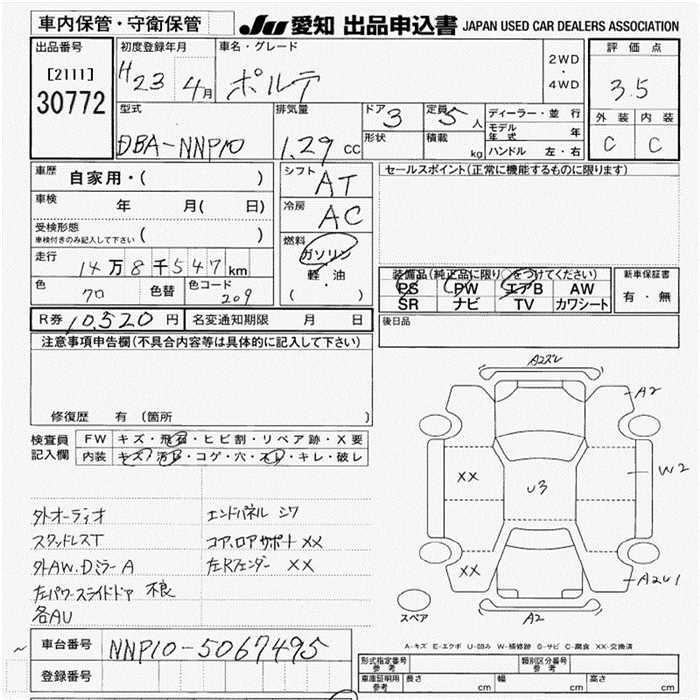 車内保管・守衛保管
JU 愛知 出品申込書 JAPAN USED CAR DEALERS ASSOCIATION
出品番号
[2111]
30772
初度登録年月
H23 4月
車名・グレード
ポルテ
2WD
・
4WD
評価点
3.5
外装 内装
C C
型式
DBA-NNP10
排気量
1.29 CC
ドア 3
形状
定員 5人
積載 kg
ディーラー・並行
モデル年式 年
ハンドル 左・右
車歴 自家用・( )
車検 年 月( 日)
受検形態
車検付きのみ記入して下さい ( )
走行 14万8千547km
色 クロ 色替 色コード 209
シフト AT
冷房 AC
燃料
ガソリン
軽・油
( ・ )
セールスポイント(正常に機能するものに限ります)
装備品(純正品に限り○をつけてください)
PS PW エアB AW
SR ナビ TV カワシート
新車保証書
有・無
R券 10,520円 名変通知期限 月 日
後日品
注意事項申告欄(不具合内容等は具体的に記入して下さい)
修復歴 有 (箇所 )
検査員
記入欄
FW キズ・飛石・ヒビ割・リペア跡・X要
内装 キズ・汚レ・コゲ・穴・スレ・キレ・破レ
外オーディオ
スタッドレスT
外AW.Dミラー A
左パワースライドドア 不良
各AU
エンドパネル シワ
コア、ロアサポート XX
左Rフェンダー XX
A2スレ
A2
XX
U3
W2
XX
A2U1
A2
スペア
A-キズ E-エクボ U-凹み W-補修跡 S-サビ C-腐食 XX-交換済
車台番号 NNP10-5067495
登録番号
型式指定番号
参考
類別区分番号
参考
車庫証明用
参考
長さ cm 幅 cm 高さ cm